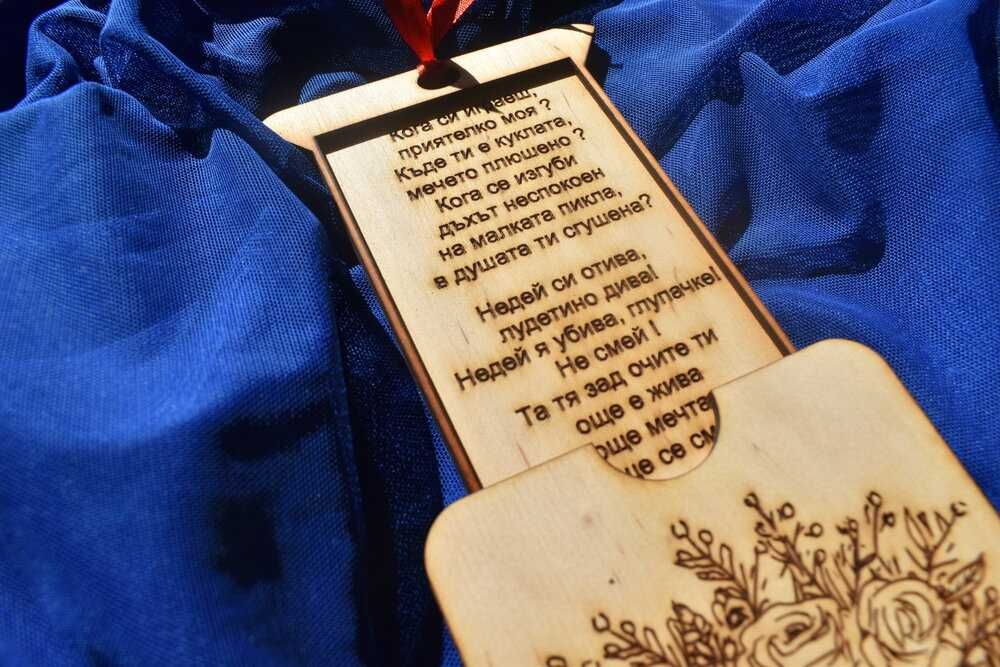 Кога си играеш,
приятелко моя ?
Къде ти е куклата,
мечето плюшено ?
Кога се изгуби
дъхът неспокоен
на малката пикла,
в душата ти сгушена?
Недей си отива,
лудетино дива!
Недей я убива, глупачке!
Не смей !
Та тя зад очите ти
още е жива
още мечта
ще се см